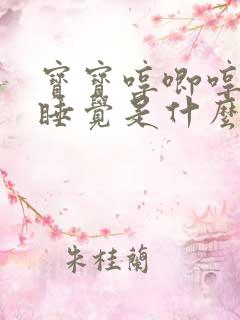 寶寶哼唧哼
睡覺是什麼
朱桂蘭